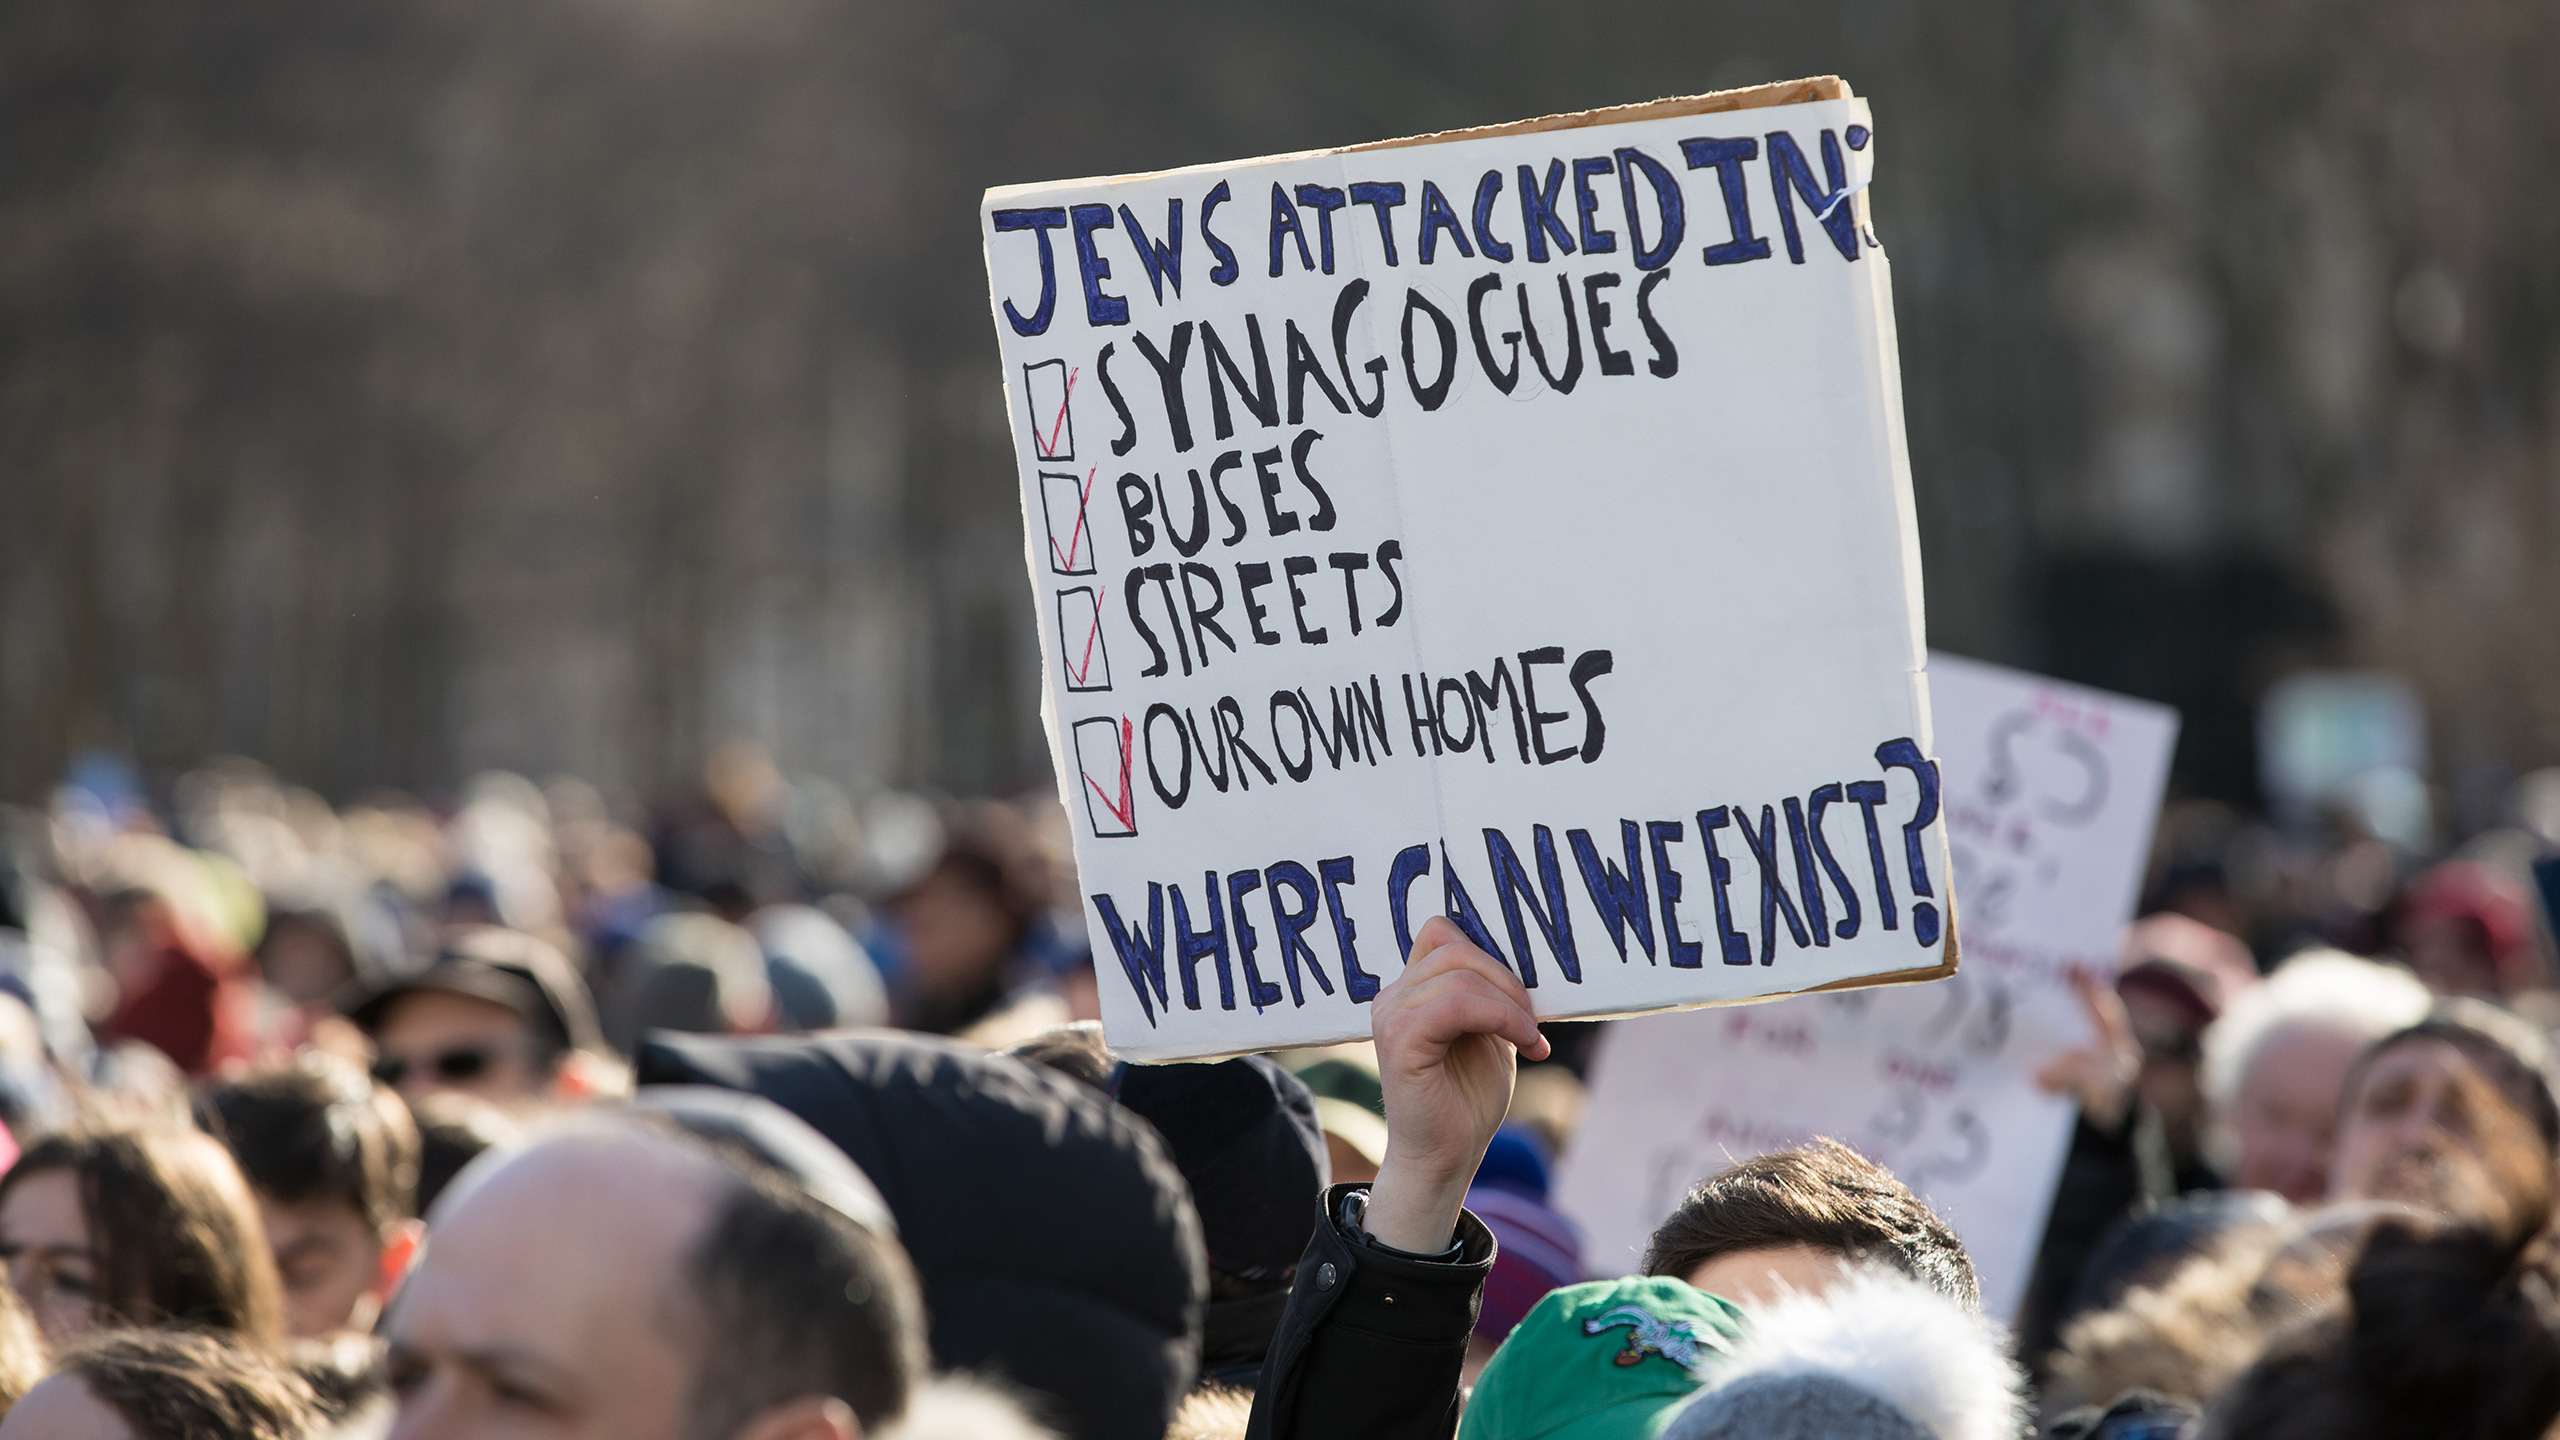 JEWS ATTACKED IN:
SYNAGOGUES
BUSES
STREETS
OUR OWN HOMES
WHERE CAN WE EXIST?